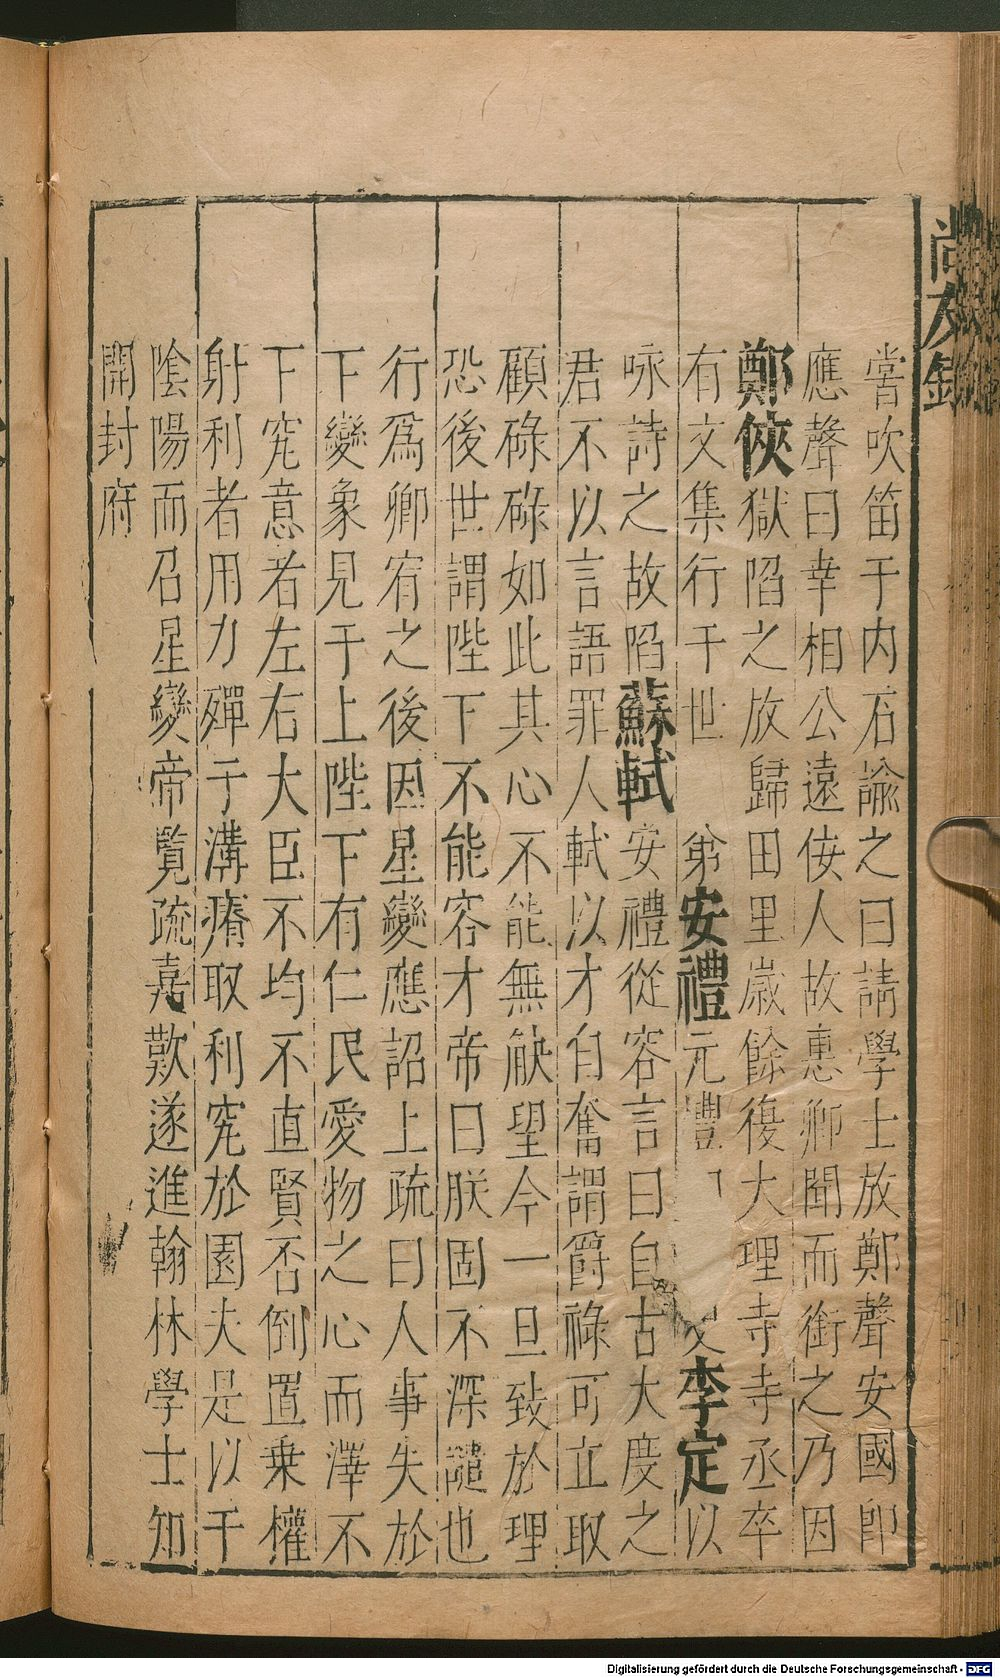 尚友錄
嘗吹笛于内石諭之曰請學士放鄭聲安國即
應聲曰幸相公遠佞人故惠卿聞而銜之乃因
鄭俠獄陷之放歸田里嵗餘復大理寺寺丞卒
有文集行于世 弟安禮元豐 李定以
咏詩之故陷蘇軾安禮從容言曰自古大度之
君不以言語罪人軾以才自奮謂爵祿可立取
顧碌碌如此其心不能無觖望今一旦致於理
恐後世謂陛下不能容才帝曰朕固不深譴也
行爲卿宥之後因星變應詔上疏曰人事失於
下變象見于上陛下有仁民愛物之心而澤不
下究意者左右大臣不均不直賢否倒置乗權
射利者用力殫于溝瘠取利究於園夫是以干
隂陽而召星變帝覽疏嘉歎遂進翰林學士知
開封府
Digitalisierung gefördert durch die Deutsche Forschungsgemeinschaft - DFG